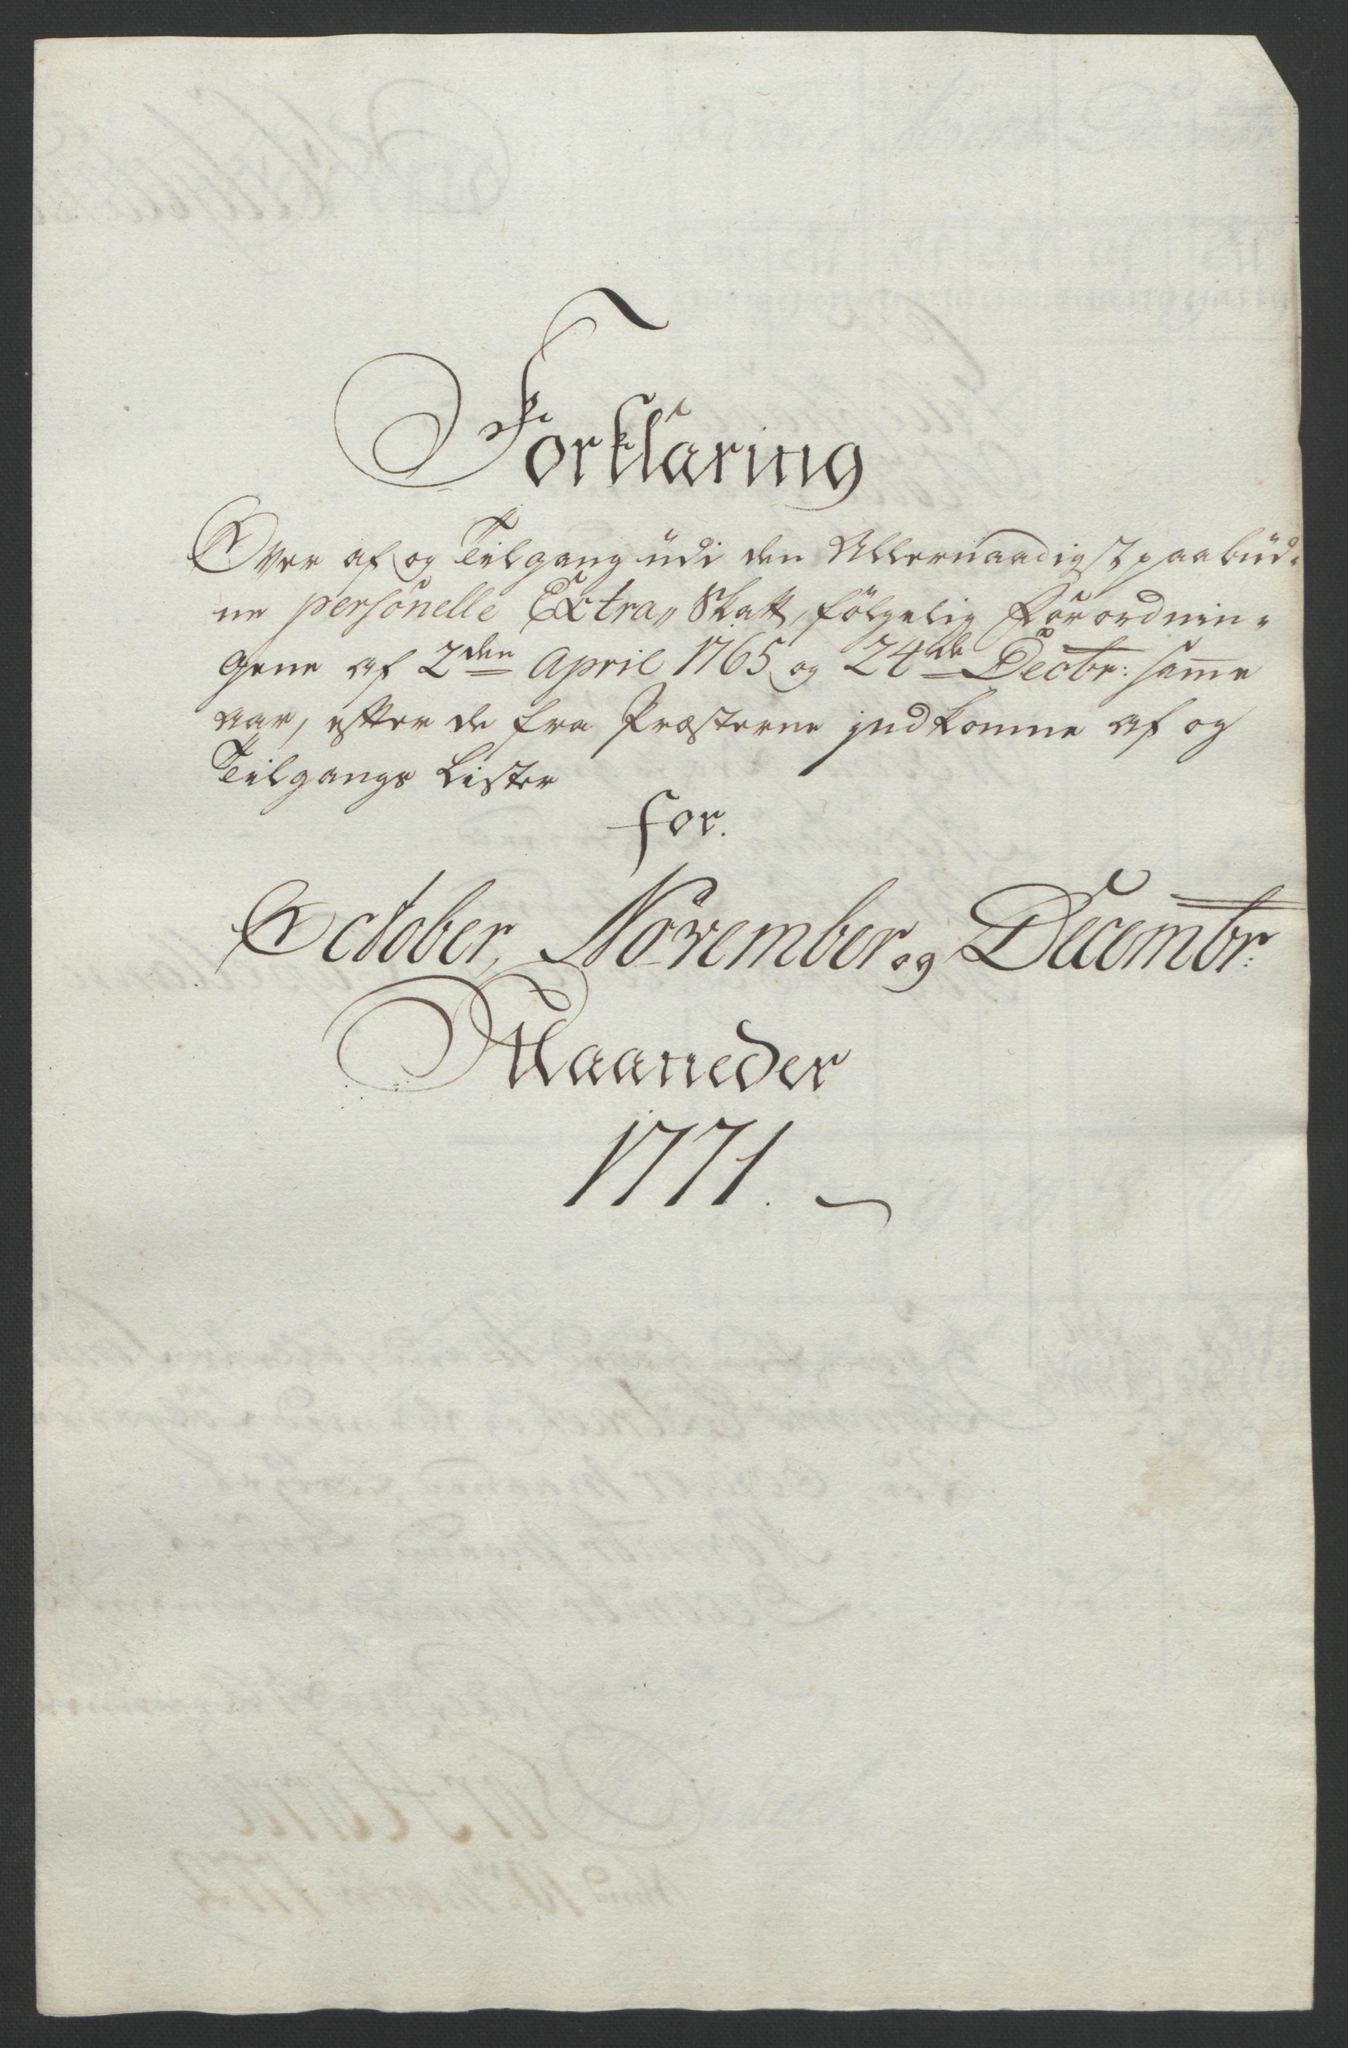 Forklaring
Over af og Tilgang udi den Allernaadigst paabud-
ne personelle Extra Skatt, følgelig Forordnin-
gene af 2den April 1765 og 24de Decbr: samme
Aar, efter de fra Præsterne indkomne Af og
Tilgangs Lister
for
October, November og Decembr:
Maaneder
1771.